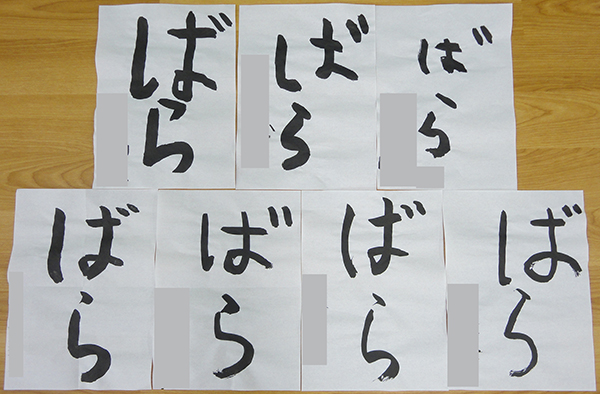 ばら
ばら
ばら
ばら
ばら
ばら
ばら